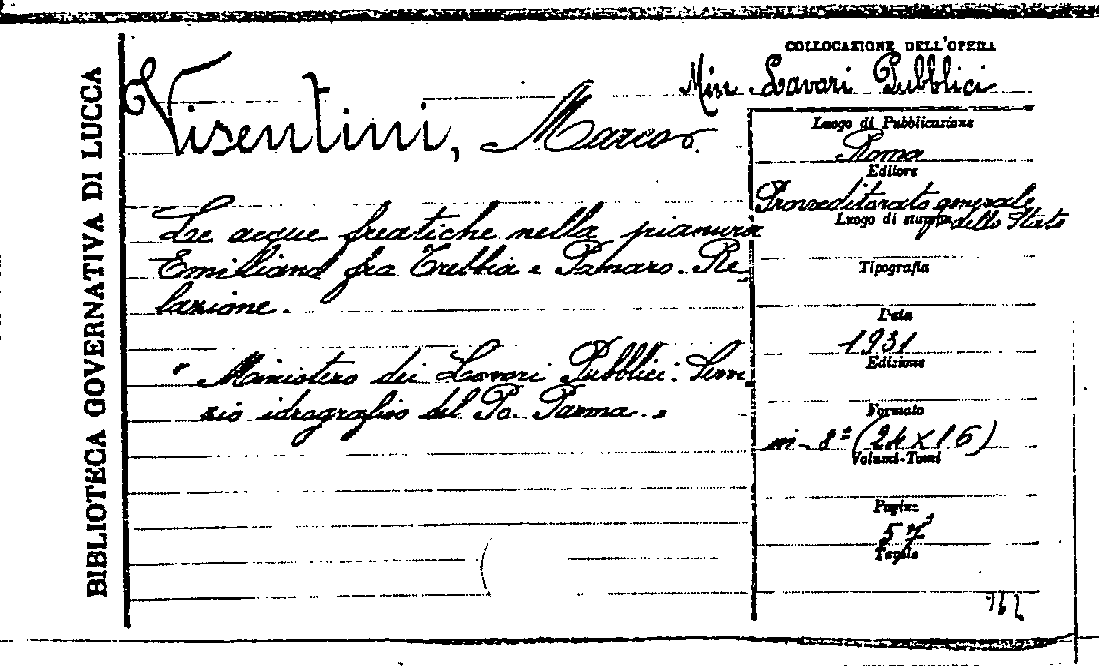 BIBLIOTECA GOVERNATIVA DI LUCCA
COLLOCAZIONE DELL'OPERA
Min. Lavori Pubblici
Visentini, Marco.
Le acque freatiche nella pianura
Emiliana fra Trebbia e Panaro. Re-
lazione.
" Ministero dei Lavori Pubblici. Servi-
zio idrografico del Po. Parma. "
Luogo di Pubblicazione
Roma
Editore
Provveditorato generale
dello Stato
Luogo di stampa
Tipografia
Data
1931
Edizione
Formato
in-8º (24 x 16)
Volumi-Tomi
Pagine
57
Tavole